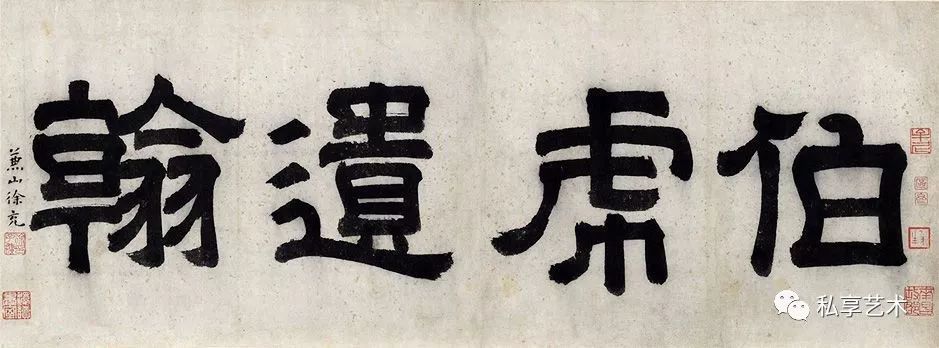 伯虎遺翰
兼山徐充
私享艺术